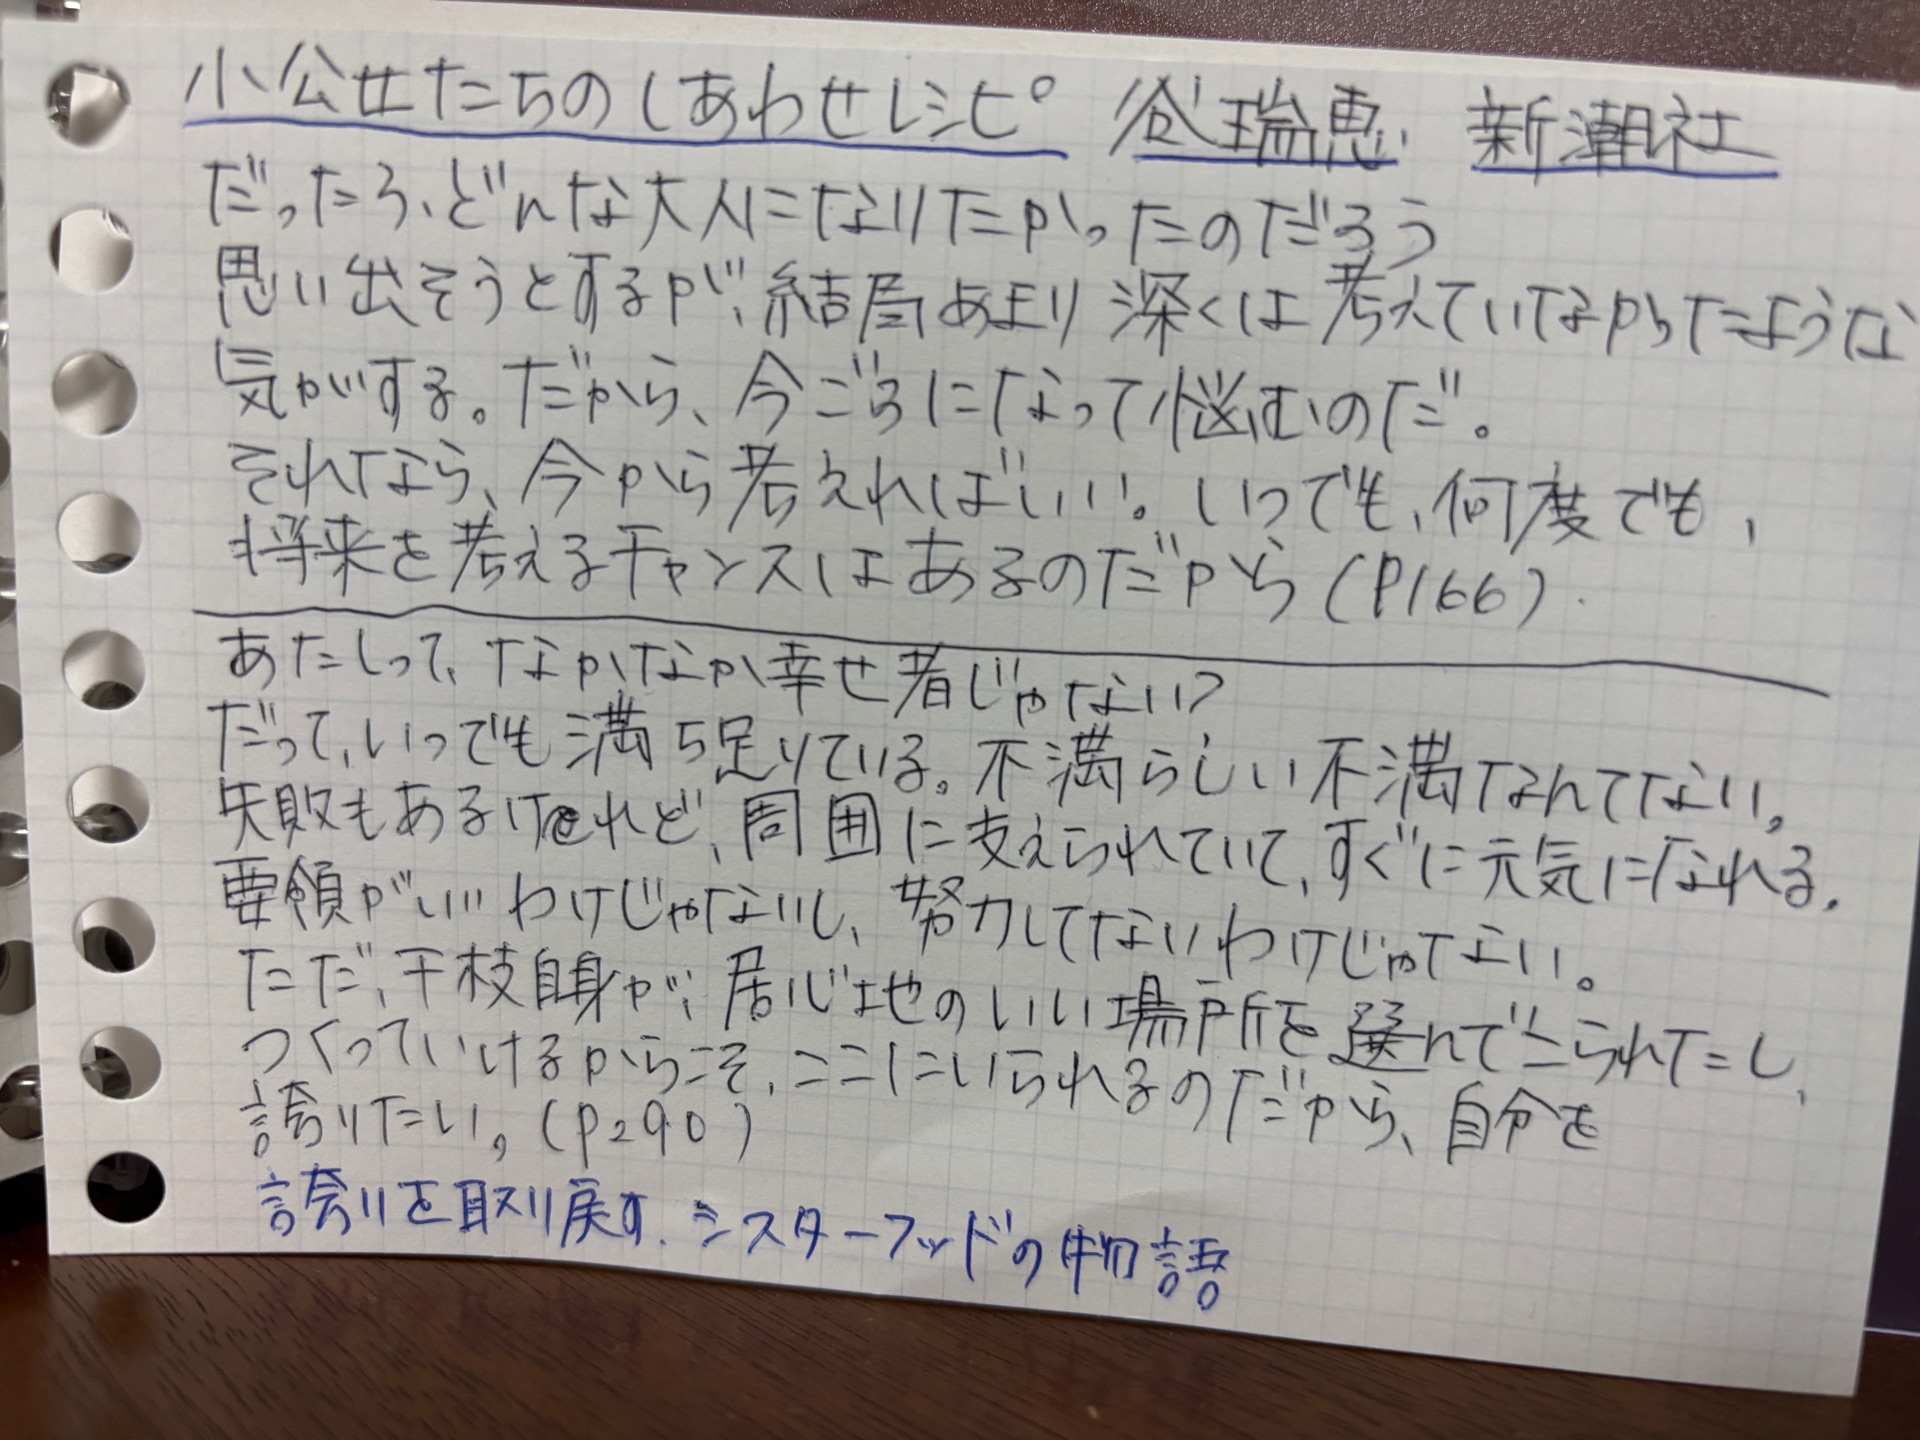 小公女たちのしあわせレシピ 谷瑞恵 新潮社
だったら、どんな大人になりたかったのだろう
思い出そうとするが、結局あまり深くは考えていなかったような
気がする。だから、今ごろになって悩むのだ。
それなら、今から考えればいい。いつでも、何度でも、
将来を考えるチャンスはあるのだから(P166)
あたしって、なかなか幸せ者じゃない?
だって、いつでも満ち足りている。不満らしい不満なんてない。
失敗もあるけれど、周囲に支えられていて、すぐに元気になれる。
要領がいいわけじゃないし、努力してないわけじゃない。
ただ、千枝自身が、居心地のいい場所を選んでこられたし、
つくっていけるからこそ、ここにいられるのだから、自分を
誇りたい。(P290)
誇りを取り戻す、シスターフッドの物語